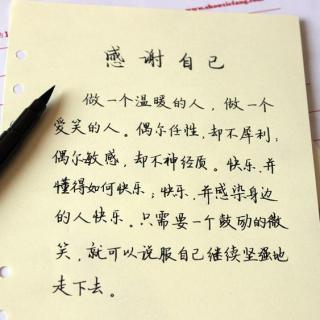 感谢自己
做一个温暖的人，做一个
爱笑的人。偶尔任性，却不犀利；
偶尔敏感，却不神经质。快乐，并
懂得如何快乐；快乐，并感染身边
的人快乐。只需要一个鼓动的微
笑，就可以说服自己继续坚强地
走下去。